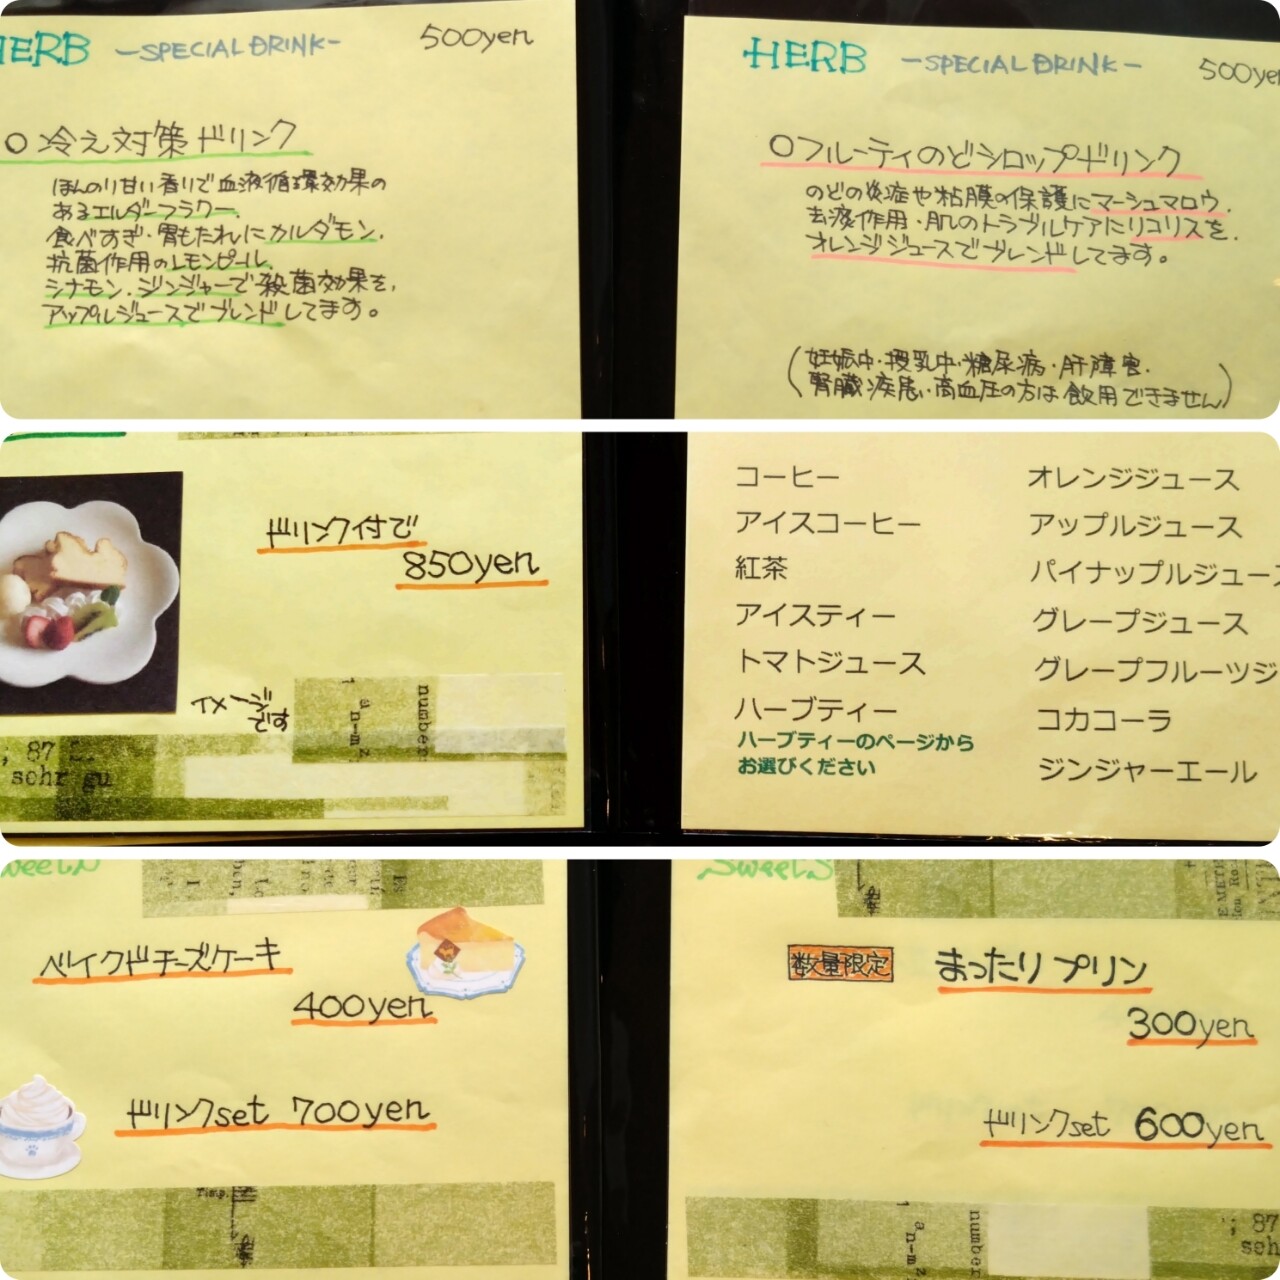 HERB -SPECIAL DRINK- 500yen
○冷え対策ドリンク
ほんのり甘い香りで血液循環効果の
あるエルダーフラワー、
食べすぎ・胃もたれにカルダモン、
抗菌作用のレモンピール、
シナモン、ジンジャーで殺菌効果を、
アップルジュースでブレンドしてます。
HERB -SPECIAL DRINK- 500ye
○フルーティのどシロップドリンク
のどの炎症や粘膜の保護にマーシュマロウ、
去痰作用・肌のトラブルケアにリコリスを、
オレンジジュースでブレンドしてます。
(妊娠中・授乳中・糖尿病・肝障害・
腎臓疾患・高血圧の方は飲用できません)
ドリンク付で
850yen
イメージ
です
number
a
n-m
; 87
sehr gu
コーヒー
アイスコーヒー
紅茶
アイスティー
トマトジュース
ハーブティー
ハーブティーのページから
お選びください
オレンジジュース
アップルジュース
パイナップルジュース
グレープジュース
グレープフルーツジ
コカコーラ
ジンジャーエール
weets
ベイクドチーズケーキ
400yen
ドリンクset 700yen
Sweets
数量限定 まったりプリン
300yen
ドリンクset 600yen
number
a
n-m
; 87
seh